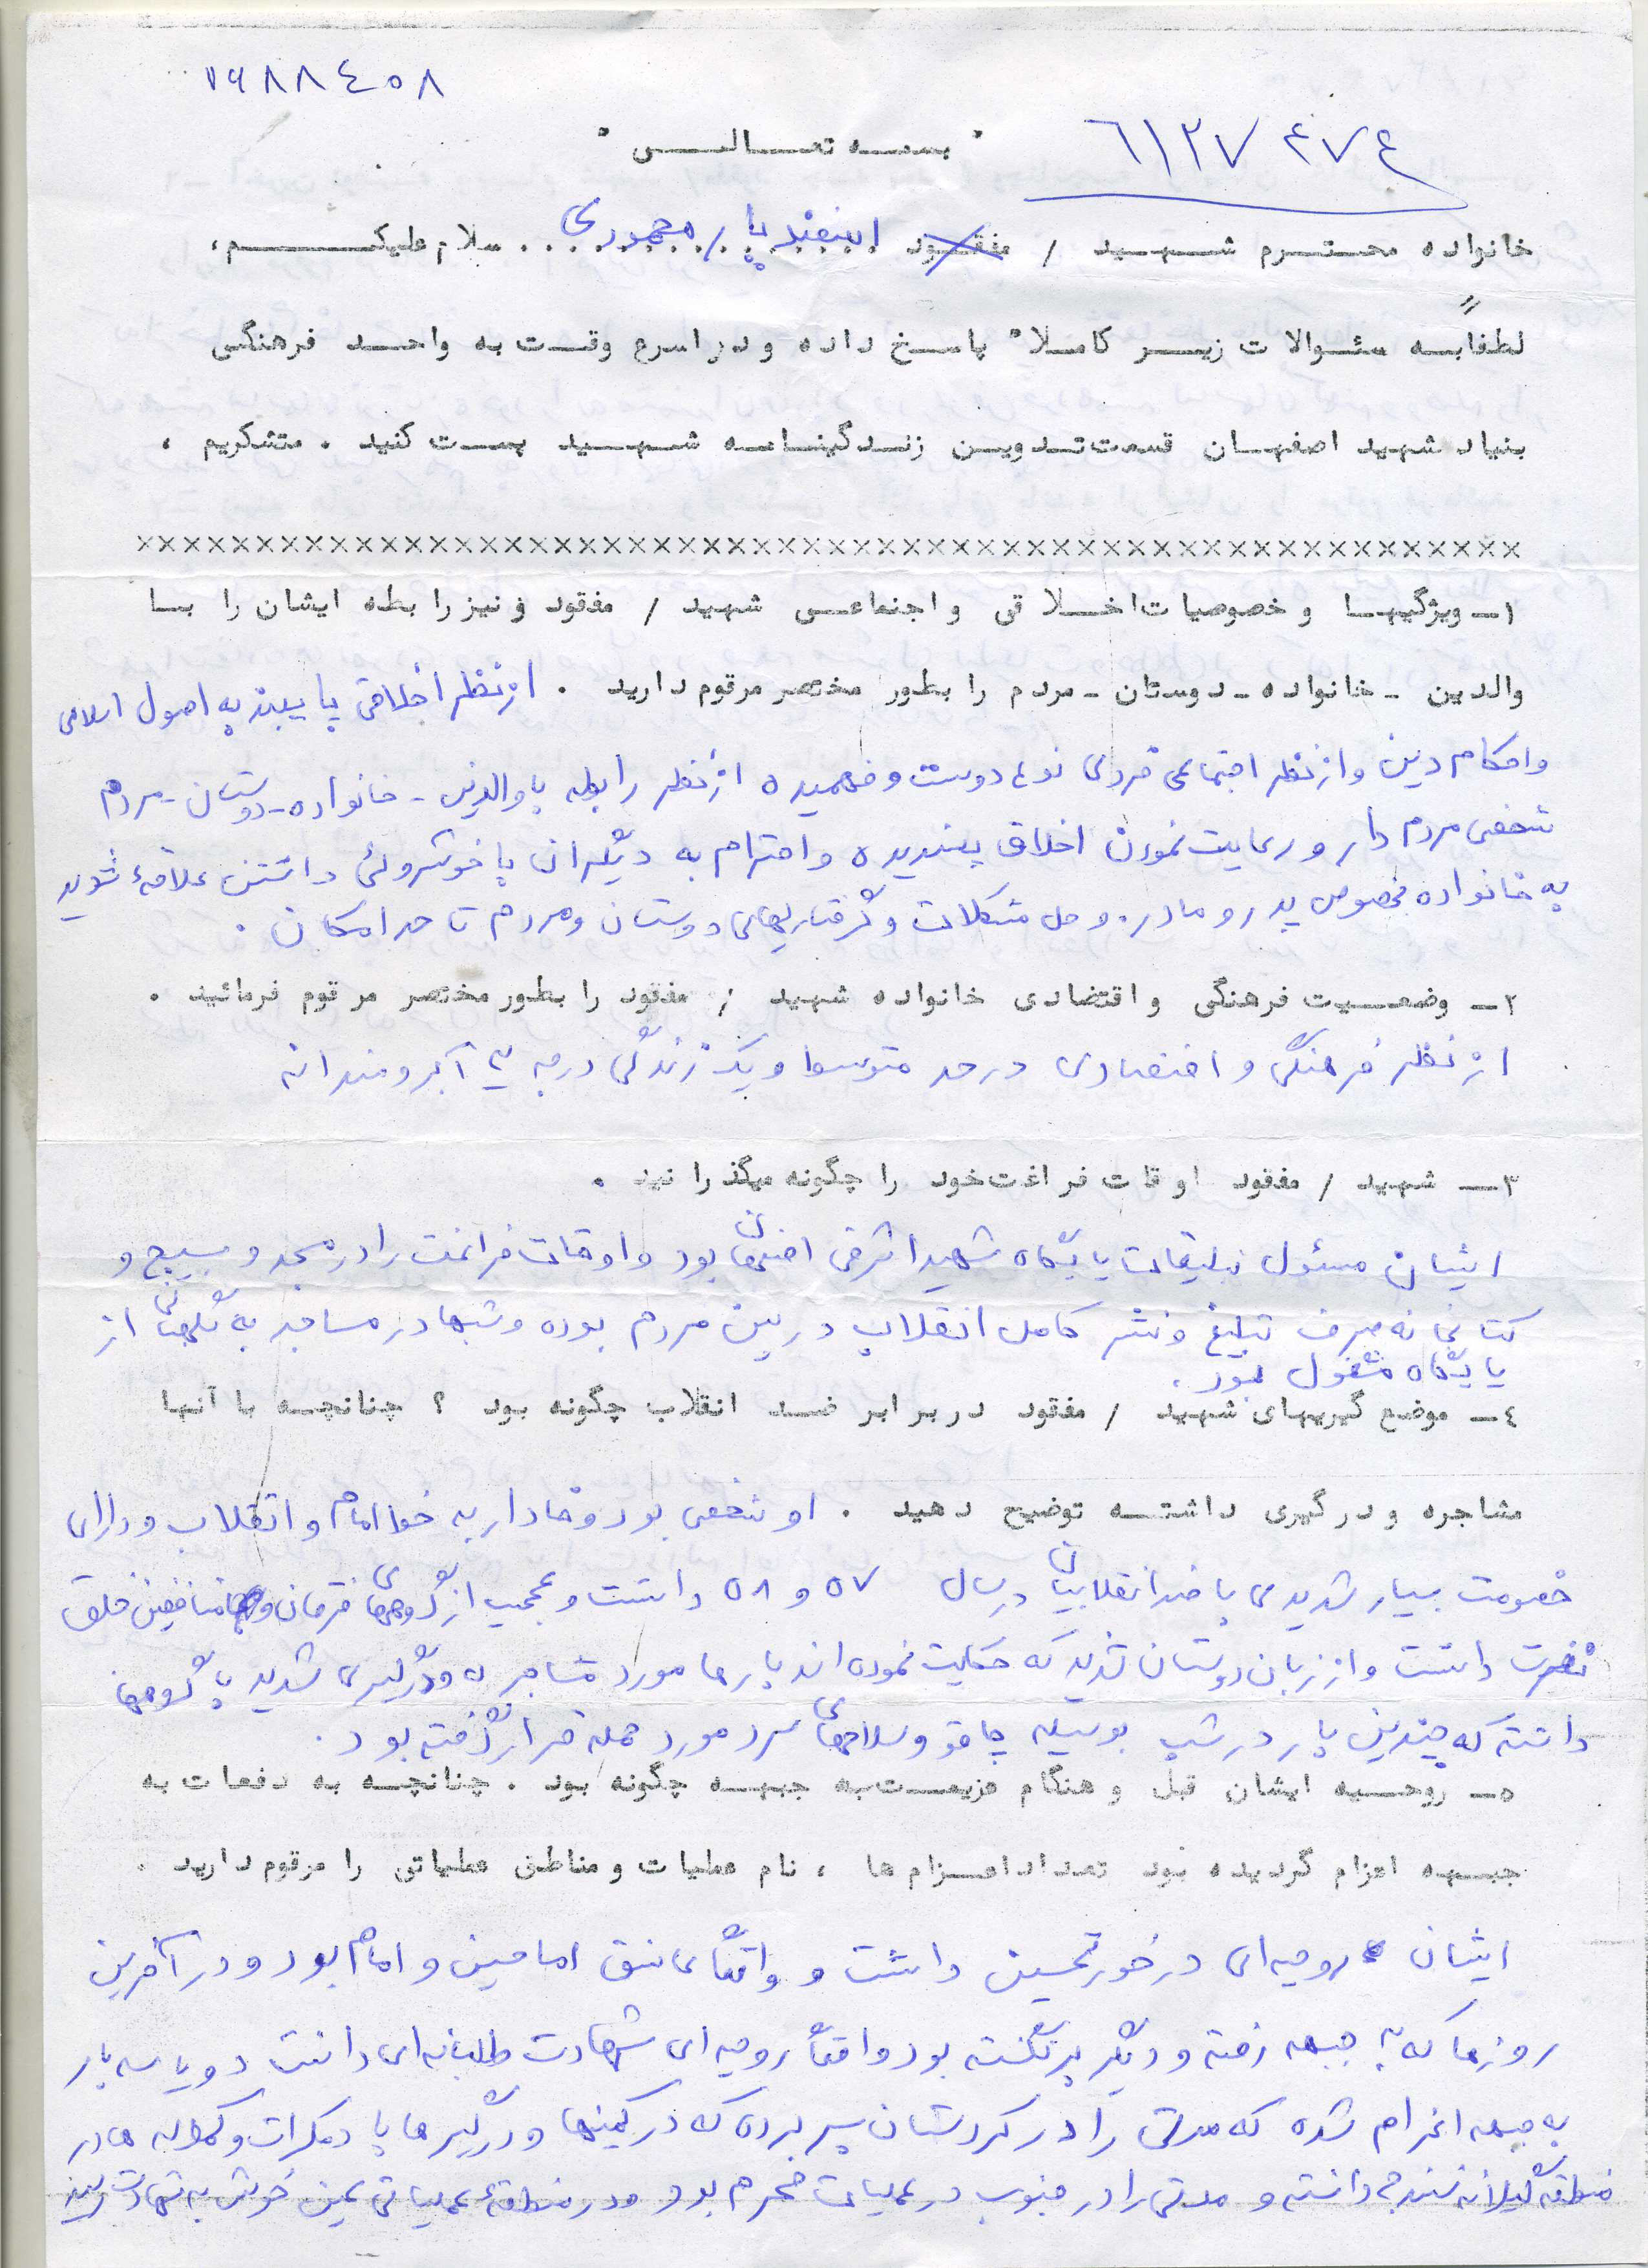 ۷۶۸۸٤۰۸
٦۱۲۷۴۷٤
" بسمه تعالی "
خانواده محترم شهید / مفقود اسفندیار محمودی سلام علیکم،
لطفاً به سئوالات زیر کاملا" پاسخ داده و در اسرع وقت به واحد فرهنگی
بنیاد شهید اصفهان قسمت تدوین زندگینامه شهید پست کنید . متشکریم ،
××××××××××××××××××××××××××××××××××××××××××××××××××××××××
۱ـ ویژگیها و خصوصیات اخلاقی و اجتماعی شهید / مفقود و نیز رابطه ایشان را با
والدین ـ خانواده ـ دوستان ـ مردم را بطور مختصر مرقوم دارید . از نظر اخلاقی پایبند به اصول اسلامی
و احکام دین و از نظر اجتماعی فردی نوع دوست و فهمیده از نظر رابطه با والدین - خانواده - دوستان - مردم
شخصی مردم دار و رعایت نمودن اخلاق پسندیده و احترام به دیگران با خوشروئی داشتن علاقهٔ شدید
به خانواده بخصوص پدر و مادر. و حل مشکلات و گرفتاریهای دوستان و مردم تا حد امکان .
۲ـ وضعیت فرهنگی و اقتضادی خانواده شهید / مفقود را بطور مختصر مرقوم فرمائید .
از نظر فرهنگی و اقتصادی در حد متوسط و یک زندگی درجه ۳ آبرومندانه
۳ـ شهید / مفقود اوقات فراغت خود را چگونه میگذرانید .
ایشان مسئول تبلیغات پایگاه شهید اشرفی اصفهانی بود و اوقات فراغت را در مسجد و بسیج و
کتابخانه صرف تبلیغ و نشر کامل انقلاب در بین مردم بوده و شبها در مساجد به نگهبانی از
پایگاه مشغول بود .
٤ـ موضع گیریهای شهید / مفقود در برابر ضد انقلاب چگونه بود ؟ چنانچه با آنها
مشاجره و درگیری داشته توضیح دهید . او شخصی بود وفادار به خط امام و انقلاب و دارای
خصومت بسیار شدیدی با ضد انقلابیان در سال ۵۷ و ۵۸ داشت و عجیب از گروههای فرقان و منافقین خلق
نفرت داشت و از زبان دوستان شدید که حکایت نموده اند بارها مورد مشاجره و درگیری شدید با گروهها
داشته که چندین بار در شب بوسیله چاقو و سلاحهای سرد مورد حمله قرار گرفته بود .
۵ـ روحیه ایشان قبل و هنگام عزیمت به جبهه چگونه بود . چنانچه به دفعات به
جبهه اعزام گردیده بود تعداد اعزام ها ، نام عملیات و مناطق عملیاتی را مرقوم دارید .
ایشان روحیه‌ای در خور تحسین داشت و واقعاً عاشق امام حسین و امام بود و در آخرین
روزها که به جبهه رفته و دیگر برنگشته بود واقعاً روحیه‌ای شهادت طلبانه‌ای داشت دو یا سه بار
به جبهه اعزام شده که مدتی را در کردستان بسر برده که در کمینها و درگیرها با دمکرات و کومله ها در
منطقه سنندج داشته و مدتی را در جنوب در عملیات محرم بود و در منطقهٔ عملیاتی عین خوش به شهادت رسید